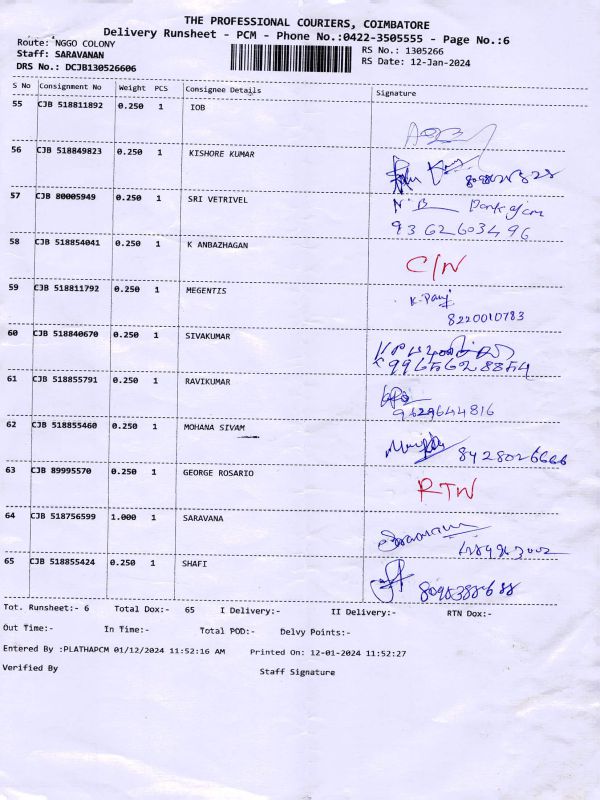 THE PROFESSIONAL COURIERS, COIMBATORE
Delivery Runsheet - PCM - Phone No.:0422-3505555 - Page No.:6
Route: NGGO COLONY
Staff: SARAVANAN
DRS No.: DCJB130526606
RS No.: 1305266
RS Date: 12-Jan-2024
S No Consignment No Weight PCS Consignee Details Signature
55 CJB 518811892 0.250 1 IOB
56 CJB 518849823 0.250 1 KISHORE KUMAR
57 CJB 80005949 0.250 1 SRI VETRIVEL
9362603496
58 CJB 518854041 0.250 1 K ANBAZHAGAN C/N
59 CJB 518811792 0.250 1 MEGENTIS
8220010783
60 CJB 518840670 0.250 1 SIVAKUMAR
61 CJB 518855791 0.250 1 RAVIKUMAR
9629644816
62 CJB 518855460 0.250 1 MOHANA SIVAM
8428026666
63 CJB 89995570 0.250 1 GEORGE ROSARIO RTW
64 CJB 518756599 1.000 1 SARAVANA
65 CJB 518855424 0.250 1 SHAFI
Tot. Runsheet:- 6 Total Dox:- 65 I Delivery:- II Delivery:- RTN Dox:-
Out Time:- In Time:- Total POD:- Delvy Points:-
Entered By :PLATHAPCM 01/12/2024 11:52:16 AM Printed On: 12-01-2024 11:52:27
Verified By Staff Signature